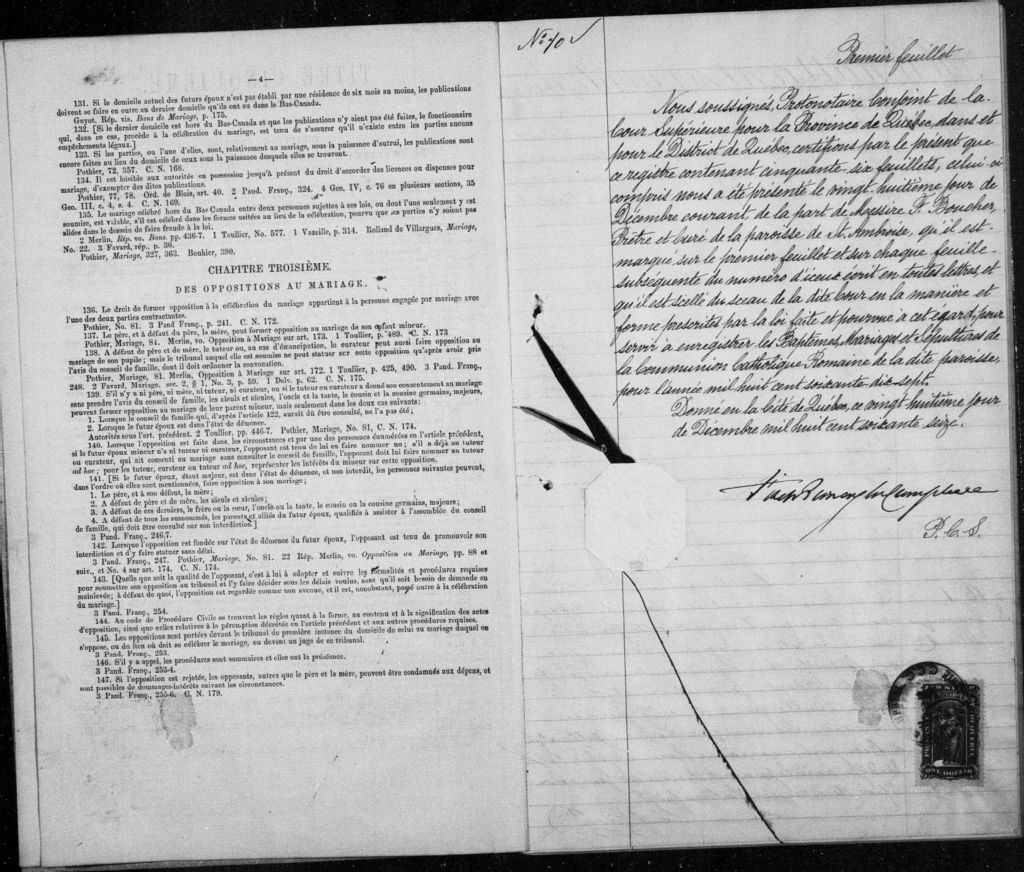 —4—
131. Si le domicile actuel des futurs époux n'est pas établi par une résidence de six mois au moins, les publications
doivent se faire en outre au dernier domicile qu'ils ont eu dans le Bas-Canada.
Guyot. Rép. vis. Bans de Mariage, p. 175.
132. [Si le dernier domicile est hors du Bas-Canada et que les publications n'y aient pas été faites, le fonctionnaire
qui, dans ce cas, procède à la célébration du mariage, est tenu de s'assurer qu'il n'existe entre les parties aucuns
empêchements légaux.]
133. Si les parties, ou l'une d'elles, sont, relativement au mariage, sous la puissance d'autrui, les publications sont
encore faites au lieu du domicile de ceux sous la puissance desquels elles se trouvent.
Pothier, 72, 357. C. N. 168.
134. Il est loisible aux autorités en possession jusqu'à présent du droit d'accorder des licences ou dispenses pour
mariage, d'exempter des dites publications.
Pothier, 77, 78. Ord. de Blois, art. 40. 2 Pand. Franç., 324. 4 Geo. IV, c. 76 en plusieurs sections, 35
Geo. III, c. 4, s. 4. C. N. 169.
135. Le mariage célébré hors du Bas-Canada entre deux personnes sujettes à ses lois, ou dont l'une seulement y est
soumise, est valable, s'il est célébré dans les formes usitées au lieu de la célébration, pourvu que les parties n'y soient pas
allées dans le dessein de faire fraude à la loi.
2 Merlin, Rép. vo. Bans. pp. 436-7. 1 Toullier, No. 577. 1 Vazeille, p. 314. Rolland de Villargues, Mariage,
No. 22. 3 Favard, rép., p. 30.
Pothier, Mariage, 327, 363. Bouhier, 390.
CHAPITRE TROISIÈME.
DES OPPOSITIONS AU MARIAGE.
136. Le droit de former opposition à la célébration du mariage appartient à la personne engagée par mariage avec
l'une des deux parties contractantes.
Pothier, No. 81. 3 Pand Franç., p. 241. C. N. 172.
137. Le père, et à défaut du père, la mère, peut former opposition au mariage de son enfant mineur.
Pothier, Mariage, 81. Merlin, vo. Opposition à Mariage sur art. 173. 1 Toullier, p. 489. C. N. 173
138. A défaut de père et de mère, le tuteur ou, au cas d'émancipation, le curateur peut aussi faire opposition au
mariage de son pupile; mais le tribunal auquel elle est soumise ne peut statuer sur cette opposition qu'après avoir pris
l'avis du conseil de famille, dont il doit ordonner la convocation.
Pothier, Mariage, 81. Merlin, Opposition à Mariage sur art. 172. 1 Toullier, p. 425, 490. 3 Pand. Franç.,
248. 2 Favard, Mariage, sec. 2, § 1, No. 3, p. 59. 1 Delv. p. 62. C. N. 175.
139. S'il n'y a ni père, ni mère, ni tuteur, ni curateur, ou si le tuteur ou curateur a donné son consentement au mariage
sans prendre l'avis du conseil de famille, les aïeuls et aïeules, l'oncle et la tante, le cousin et la cousine germains, majeurs,
peuvent former opposition au mariage de leur parent mineur, mais seulement dans les deux cas suivants:
1. Lorsque le conseil de famille qui, d'après l'article 122, aurait dû être consulté, ne l'a pas été;
2. Lorsque le futur époux est dans l'état de démence.
Autorités sous l'art. précédent. 2 Toullier. pp. 416-7. Pothier, Mariage, No. 81, C. N. 174.
140. Lorsque l'opposition est faite dans les circonstances et par une des personnes énumérées en l'article précédent,
si le futur époux mineur n'a ni tuteur ni curateur, l'opposant est tenu de lui en faire nommer un; s'il a déjà un tuteur
ou curateur, qui ait consenti au mariage sans consulter le conseil de famille, l'opposant doit lui faire nommer un tuteur
ad hoc; pour les tuteur, curateur ou tuteur ad hoc, représenter les intérêts du mineur sur cette opposition.
141. [Si le futur époux, étant majeur, est dans l'état de démence, et non interdit, les personnes suivantes peuvent,
dans l'ordre où elles sont mentionnées, faire opposition à son mariage;
1. Le père, et à son défaut, la mère;
2. A défaut de père et de mère, les aïeuls et aïeules;
3. A défaut de ces derniers, le frère ou la sœur, l'oncle ou la tante, le cousin ou la cousine germains, majeurs;
4. A défaut de tous les susnommés, les parents et alliés du futur époux, qualifiés à assister à l'assemblée du conseil
de famille, qui doit être consulté sur son interdiction.]
3 Pand. Franç., 246,7.
142. Lorsque l'opposition est fondée sur l'état de démence du futur époux, l'opposant est tenu de promouvoir son
interdiction et d'y faire statuer sans délai.
3 Pand. Franç., 247. Pothier, Mariage, No. 81. 22 Rép. Merlin, vo. Opposition au Mariage, pp. 88 et
suiv., et No. 4 sur art. 174. C. N. 174.
143. [Quelle que soit la qualité de l'opposant, c'est à lui à adopter et suivre les formalités et procédures requises
pour soumettre son opposition au tribunal et l'y faire décider sous les délais voulus, sans qu'il soit besoin de demande en
mainlevée; à défaut de quoi, l'opposition est regardée comme non avenue, et il est, nonobstant, passé outre à la célébration
du mariage.]
3 Pand. Franç., 254.
144. Au code de Procédure Civile se trouvent les règles quant à la forme, au contenu et à la signification des actes
d'opposition, ainsi que celles relatives à la péremption décrétée en l'article précédent et aux autres procédures requises.
145. Les oppositions sont portées devant le tribunal de première instance du domicile de celui au mariage duquel on
s'oppose, ou du lieu où doit se célébrer le mariage, ou devant un juge de ce tribunal.
3 Pand. Franç., 253.
146. S'il y a appel, les procédures sont sommaires et elles ont la préséance.
3 Pand. Franç., 253-4.
147. Si l'opposition est rejetée, les opposants, autres que le père et la mère, peuvent être condamnés aux dépens, et
sont passibles de dommages-intérêts suivant les circonstances.
3 Pand. Franç., 255-6. C. N. 179.
No 70
Premier feuillet
Nous soussignés, Protonotaire Conjoint de la
Cour Supérieure pour la Province de Québec, dans et
pour le District de Québec, certifions par le présent que
ce registre contenant cinquante-six feuillets, celui-ci
compris nous a été présenté le vingt-huitième jour de
Décembre courant de la part de Messire F. Boucher,
Prêtre et Curé de la paroisse de St. Ambroise, qu'il est
marqué sur le premier feuillet et sur chaque feuille
subséquente du numéro d'iceux écrit en toutes lettres, et
qu'il est scellé du sceau de la dite Cour en la manière et
forme prescrites par la loi faite et pourvue à cet égard, pour
servir à enregistrer les Baptêmes, Mariages et Sépultures de
la Communion Catholique Romaine de la dite paroisse,
pour l'année mil huit cent soixante dix sept.
Donné en la Cité de Québec, ce vingt huitième jour
de Décembre mil huit cent soixante seize.
P. C. S.
ONE DOLLAR